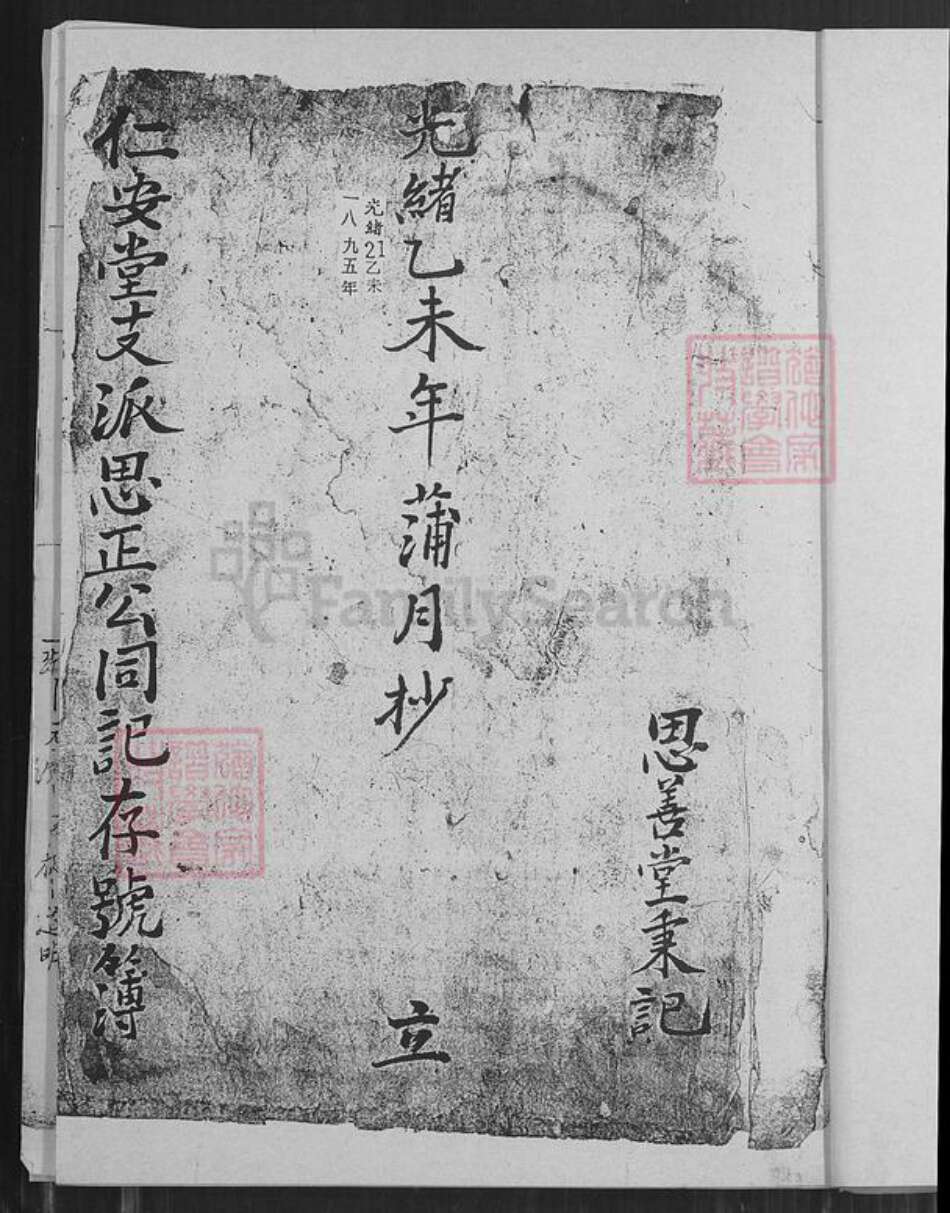 思善堂秉記
光緒乙未年蒲月抄 立
光緒21乙未
一八九五年
仁安堂支派思正公同記存號簿
FamilySearch